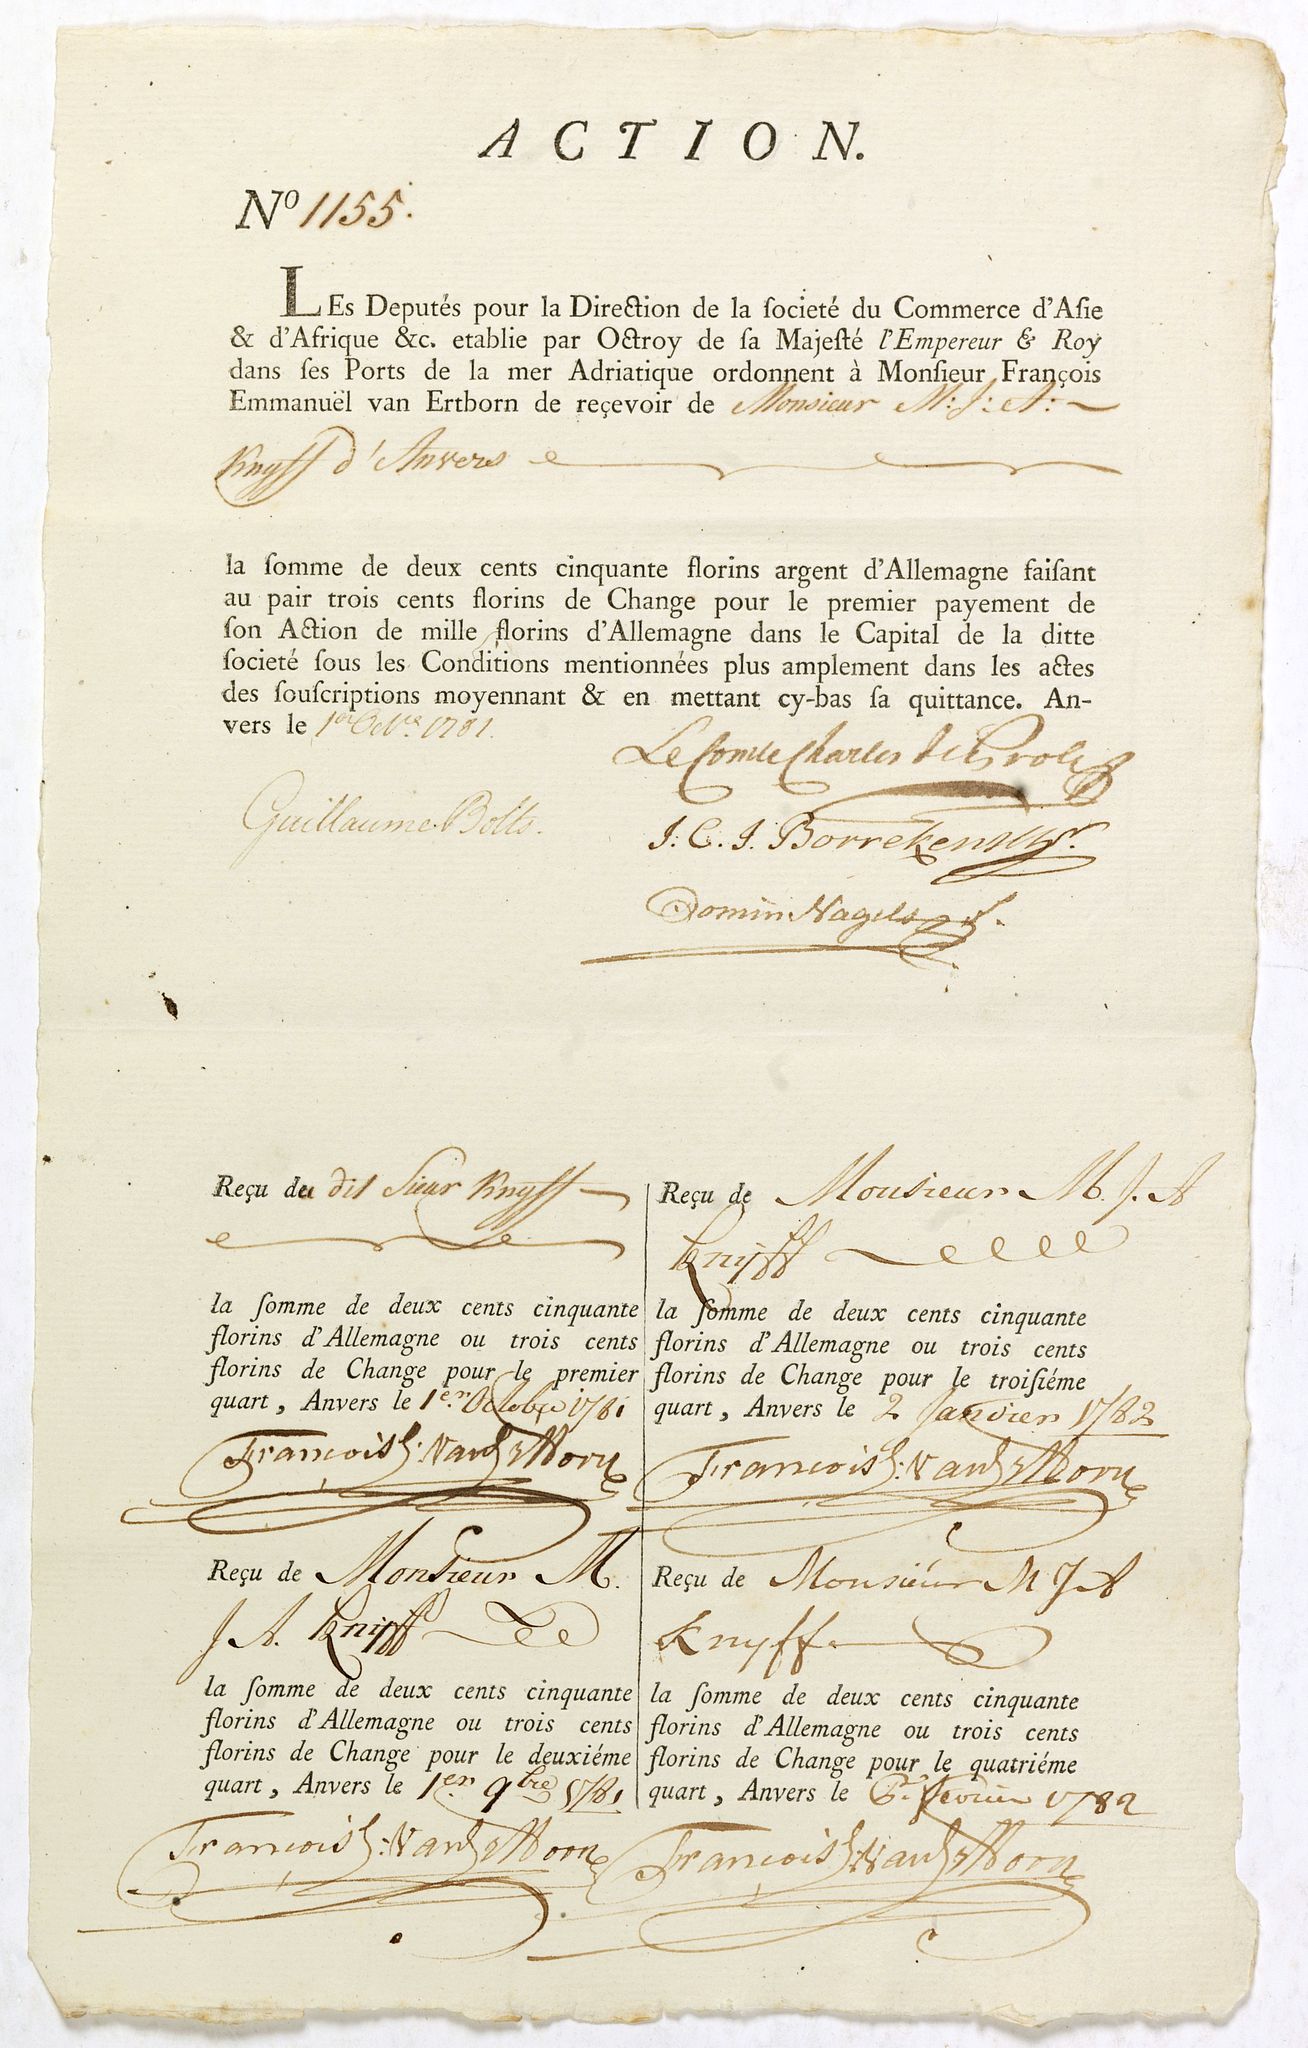 ACTION.
Nº 1155.
LEs Deputés pour la Direction de la ſocieté du Commerce d'Aſie
& d'Afrique &c. etablie par Octroy de ſa Majeſté l'Empereur & Roy
dans ſes Ports de la mer Adriatique ordonnent à Monſieur François
Emmanuël van Ertborn de reçevoir de Monsieur M: J: A:
Knyff d'Anvers
la ſomme de deux cents cinquante florins argent d'Allemagne faiſant
au pair trois cents florins de Change pour le premier payement de
ſon Action de mille florins d'Allemagne dans le Capital de la ditte
ſocieté ſous les Conditions mentionnées plus amplement dans les actes
des ſouſcriptions moyennant & en mettant cy-bas ſa quittance. An-
vers le 1er Octbre 1781.
Le Comte Charles de Proli
Guillaume Bolts.
J. C. J. Borrekens
Domin Nagels
Reçu du dit Sieur Knyff
la ſomme de deux cents cinquante
florins d'Allemagne ou trois cents
florins de Change pour le premier
quart, Anvers le 1er Octobre 1781
François E: Van Ertborn
Reçu de Monsieur M. J. A
Knijff
la ſomme de deux cents cinquante
florins d'Allemagne ou trois cents
florins de Change pour le troiſiéme
quart, Anvers le 2 Janvier 1782
François E: Van Ertborn
Reçu de Monsieur M.
J A. Knijff
la ſomme de deux cents cinquante
florins d'Allemagne ou trois cents
florins de Change pour le deuxiéme
quart, Anvers le 1er 9bre 1781
François E: Van Ertborn
Reçu de Monsieur M J A
Knyff
la ſomme de deux cents cinquante
florins d'Allemagne ou trois cents
florins de Change pour le quatriéme
quart, Anvers le fevrier 1782
François E: Van Ertborn